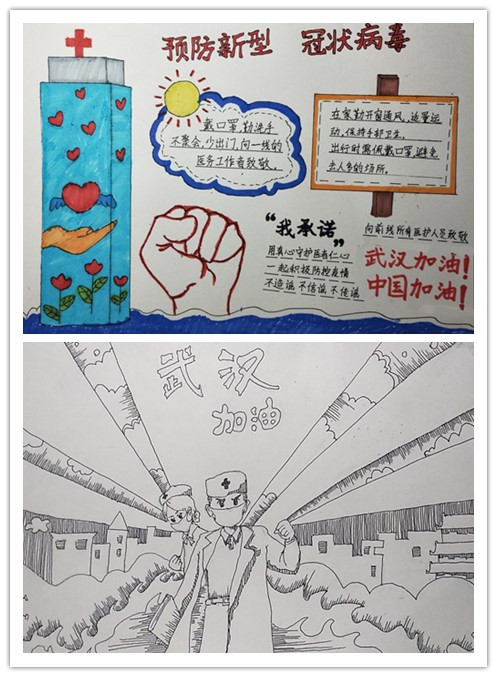 预防新型 冠状病毒
戴口罩,勤洗手
不聚会,少出门,向一线的
医务工作者致敬。
在家勤开窗通风,适量运
动,保持手部卫生。
出行时需佩戴口罩,避免
去人多的场所。
“我承诺”
用真心守护医者仁心
一起积极防控疫情
不造谣 不信谣 不传谣
向前线所有医护人员致敬
武汉加油!
中国加油!
武汉
加油